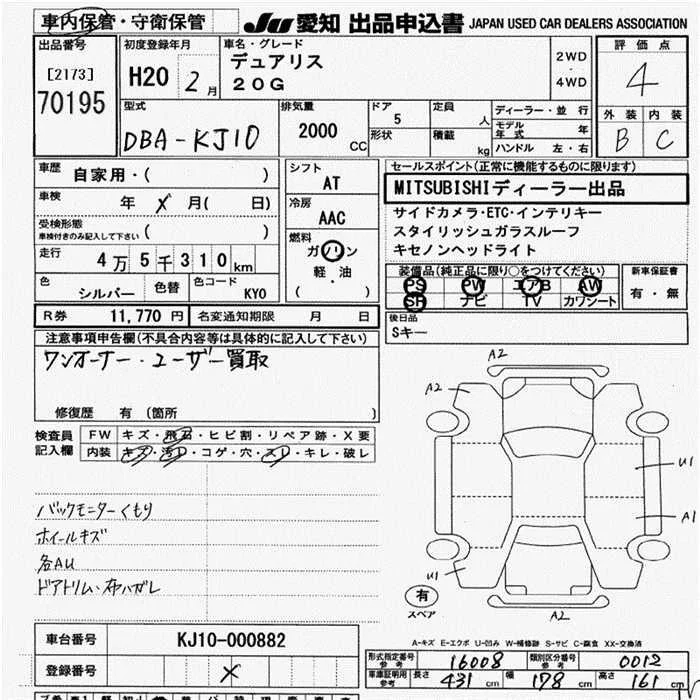 車内保管・守衛保管 JU 愛知 出品申込書 JAPAN USED CAR DEALERS ASSOCIATION
出品番号 初度登録年月 車名・グレード 評価点
[2173] H20 2月 デュアリス 2WD
70195 20G 4WD 4
型式 排気量 ドア 定員 ディーラー・並行 外装 内装
DBA-KJ10 2000 CC 5 人 モデル年式 年 B C
形状 積載 kg ハンドル 左・右
車歴 自家用・( ) シフト AT セールスポイント(正常に機能するものに限ります)
車検 年 X 月( 日) 冷房 AAC MITSUBISHIディーラー出品
受検形態 ( ) サイドカメラ・ETC・インテリキー
車検付きのみ記入して下さい スタイリッシュガラスルーフ
走行 4万5千310km 燃料 ガソリン キセノンヘッドライト
軽・油
( )
色 シルバー 色替 色コード KY0
装備品(純正品に限り○をつけてください) 新車保証書
PS PW エアB AW 有・無
SR ナビ TV カワシート
R券 11,770円 名変通知期限 月 日 後日品
Sキー
注意事項申告欄(不具合内容等は具体的に記入して下さい)
ワンオーナー・ユーザー買取
修復歴 有 (箇所 )
検査員記入欄 FW キズ・飛石・ヒビ割・リペア跡・X要
内装 キズ・汚レ・コゲ・穴・スレ・キレ・破レ
バックモニターくもり
ホイールキズ
各AU
ドアトリム・布ハガレ
A2
A2
U1
A1
U1
A2
有
スペア
A-キズ E-エクボ U-凹み W-補修跡 S-サビ C-腐食 XX-交換済
車台番号 KJ10-000882
登録番号 X
形式指定番号 参考 16008 類別区分番号 参考 0012
車庫証明用 参考 長さ 431 cm 幅 178 cm 高さ 161 cm